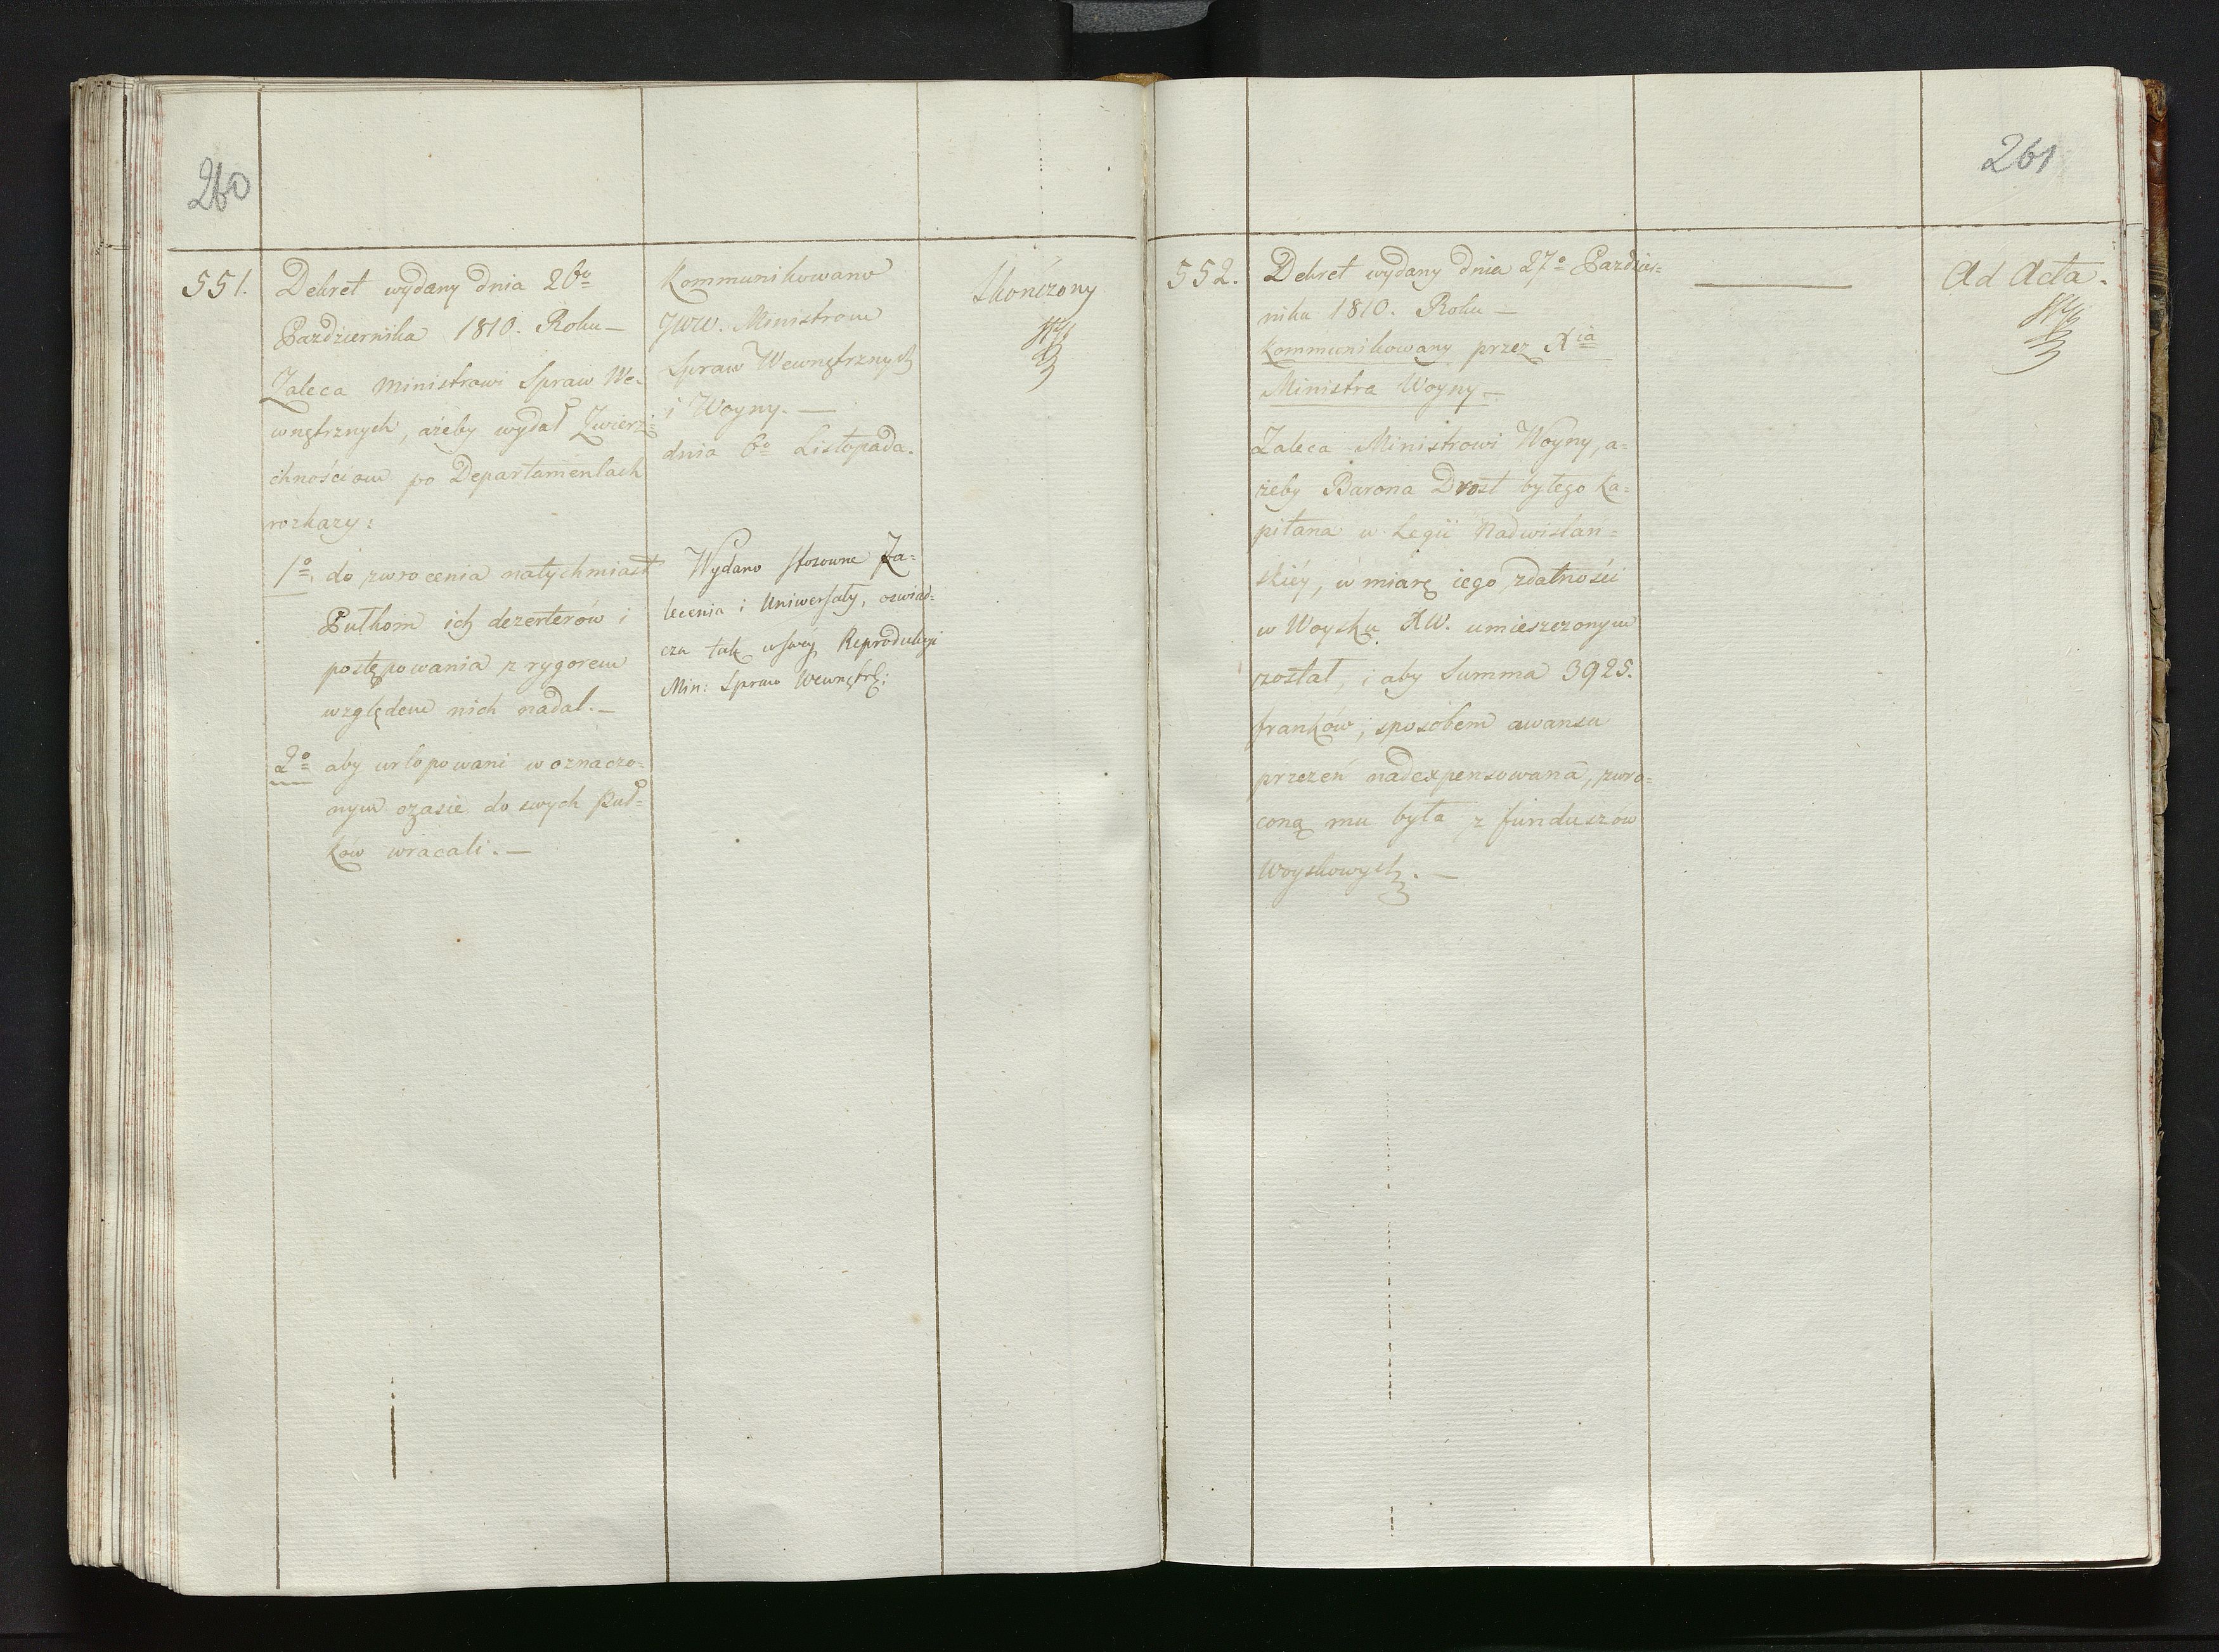 260
551.
Dekret wydany dnia 26º
Października 1810. Roku —
Zaleca Ministrowi Spraw We-
wnętrznych, ażeby wydał Zwierz=
chnościom po Departamentach
rozkazy:
1º. do zwrocenia natychmiast
Pułkom ich dezerterów i
postępowania z rygorem
względem nich nadal. —
2º aby urlopowani w oznaczo=
nym czasie do swych Puł=
ków wracali. —
Kommunikowano
JWW. Ministrom
Spraw Wewnętrznych
i Woyny. —
dnia 6º Listopada.
Wydano stosowne Za=
lecenia i Uniwersały, oświad=
cza tak w swéy Reprodukcyi
Min: Spraw Wewnętrz:
Skończony
261
552.
Dekret wydany dnia 27º Paździer=
nika 1810. Roku —
Kommunikowany przez Xia
Ministra Woyny —
Zaleca Ministrowi Woyny, a=
żeby Barona Drost byłego Ka=
pitana w Legii Nadwislan=
skiéy, w miarę iego zdatności
w Woysku XW. umieszczonym
został, i aby Summa 3925.
franków, sposobem awansu
przezeń nadexpensowana, zwro=
coną mu była z funduszów
Woyskowych. —
Ad Acta.